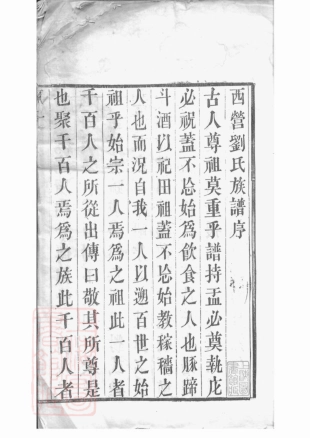 西營劉氏族譜序
古人尊祖莫重乎譜持盂必奠執庀
必祝蓋不忘始為飲食之人也豚蹄
斗酒以祀田祖蓋不忘始教稼穡之
人也而況自我一人以遡百世之始
祖乎始宗一人焉為之祖此一人者
千百人之所從出傳曰敬其所尊是
也聚千百人焉為之族此千百人者